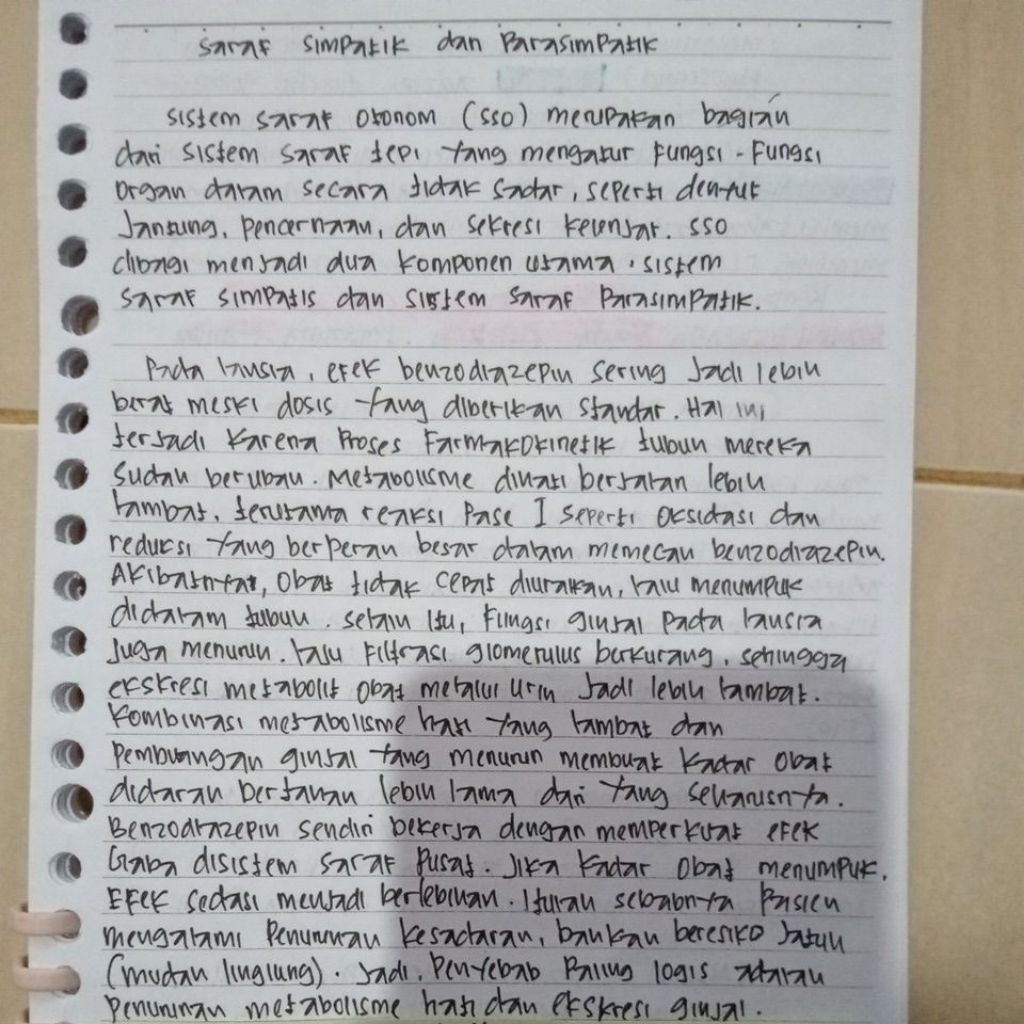 Saraf Simpatik dan Parasimpatik
Sistem saraf otonom (SSO) merupakan bagian
dari sistem saraf tepi yang mengatur fungsi-fungsi
organ dalam secara tidak sadar, seperti denyut
jantung, pencernaan, dan sekresi kelenjar. SSO
dibagi menjadi dua komponen utama, sistem
saraf simpatis dan sistem saraf parasimpatik.
Pada lansia, efek benzodiazepin sering jadi lebih
berat meski dosis yang diberikan standar. Hal ini,
terjadi karena proses farmakokinetik tubuh mereka
sudah berubah. Metabolisme dihati berjalan lebih
lambat, terutama reaksi Pase I seperti oksidasi dan
reduksi yang berperan besar dalam memecah benzodiazepin.
Akibatnya, obat tidak cepat diuraikan, lalu menumpuk
didalam tubuh. Selain itu, fungsi ginjal pada lansia
juga menurun. lalu filtrasi glomerulus berkurang, sehingga
ekskresi metabolit obat melalui urin jadi lebih lambat.
Kombinasi metabolisme hati yang lambat dan
pembuangan ginjal yang menurun membuat kadar obat
didarah bertahan lebih lama dari yang seharusnya.
Benzodiazepin sendiri bekerja dengan memperkuat efek
Gaba disistem saraf pusat. Jika kadar obat menumpuk,
Efek sedasi menjadi berlebihan. Itulah sebabnya Pasien
mengalami penurunan kesadaran, bahkan beresiko jatuh
(mudah linglung). Jadi, Penyebab Paling logis adalah
penurunan metabolisme hati dan ekskresi ginjal.